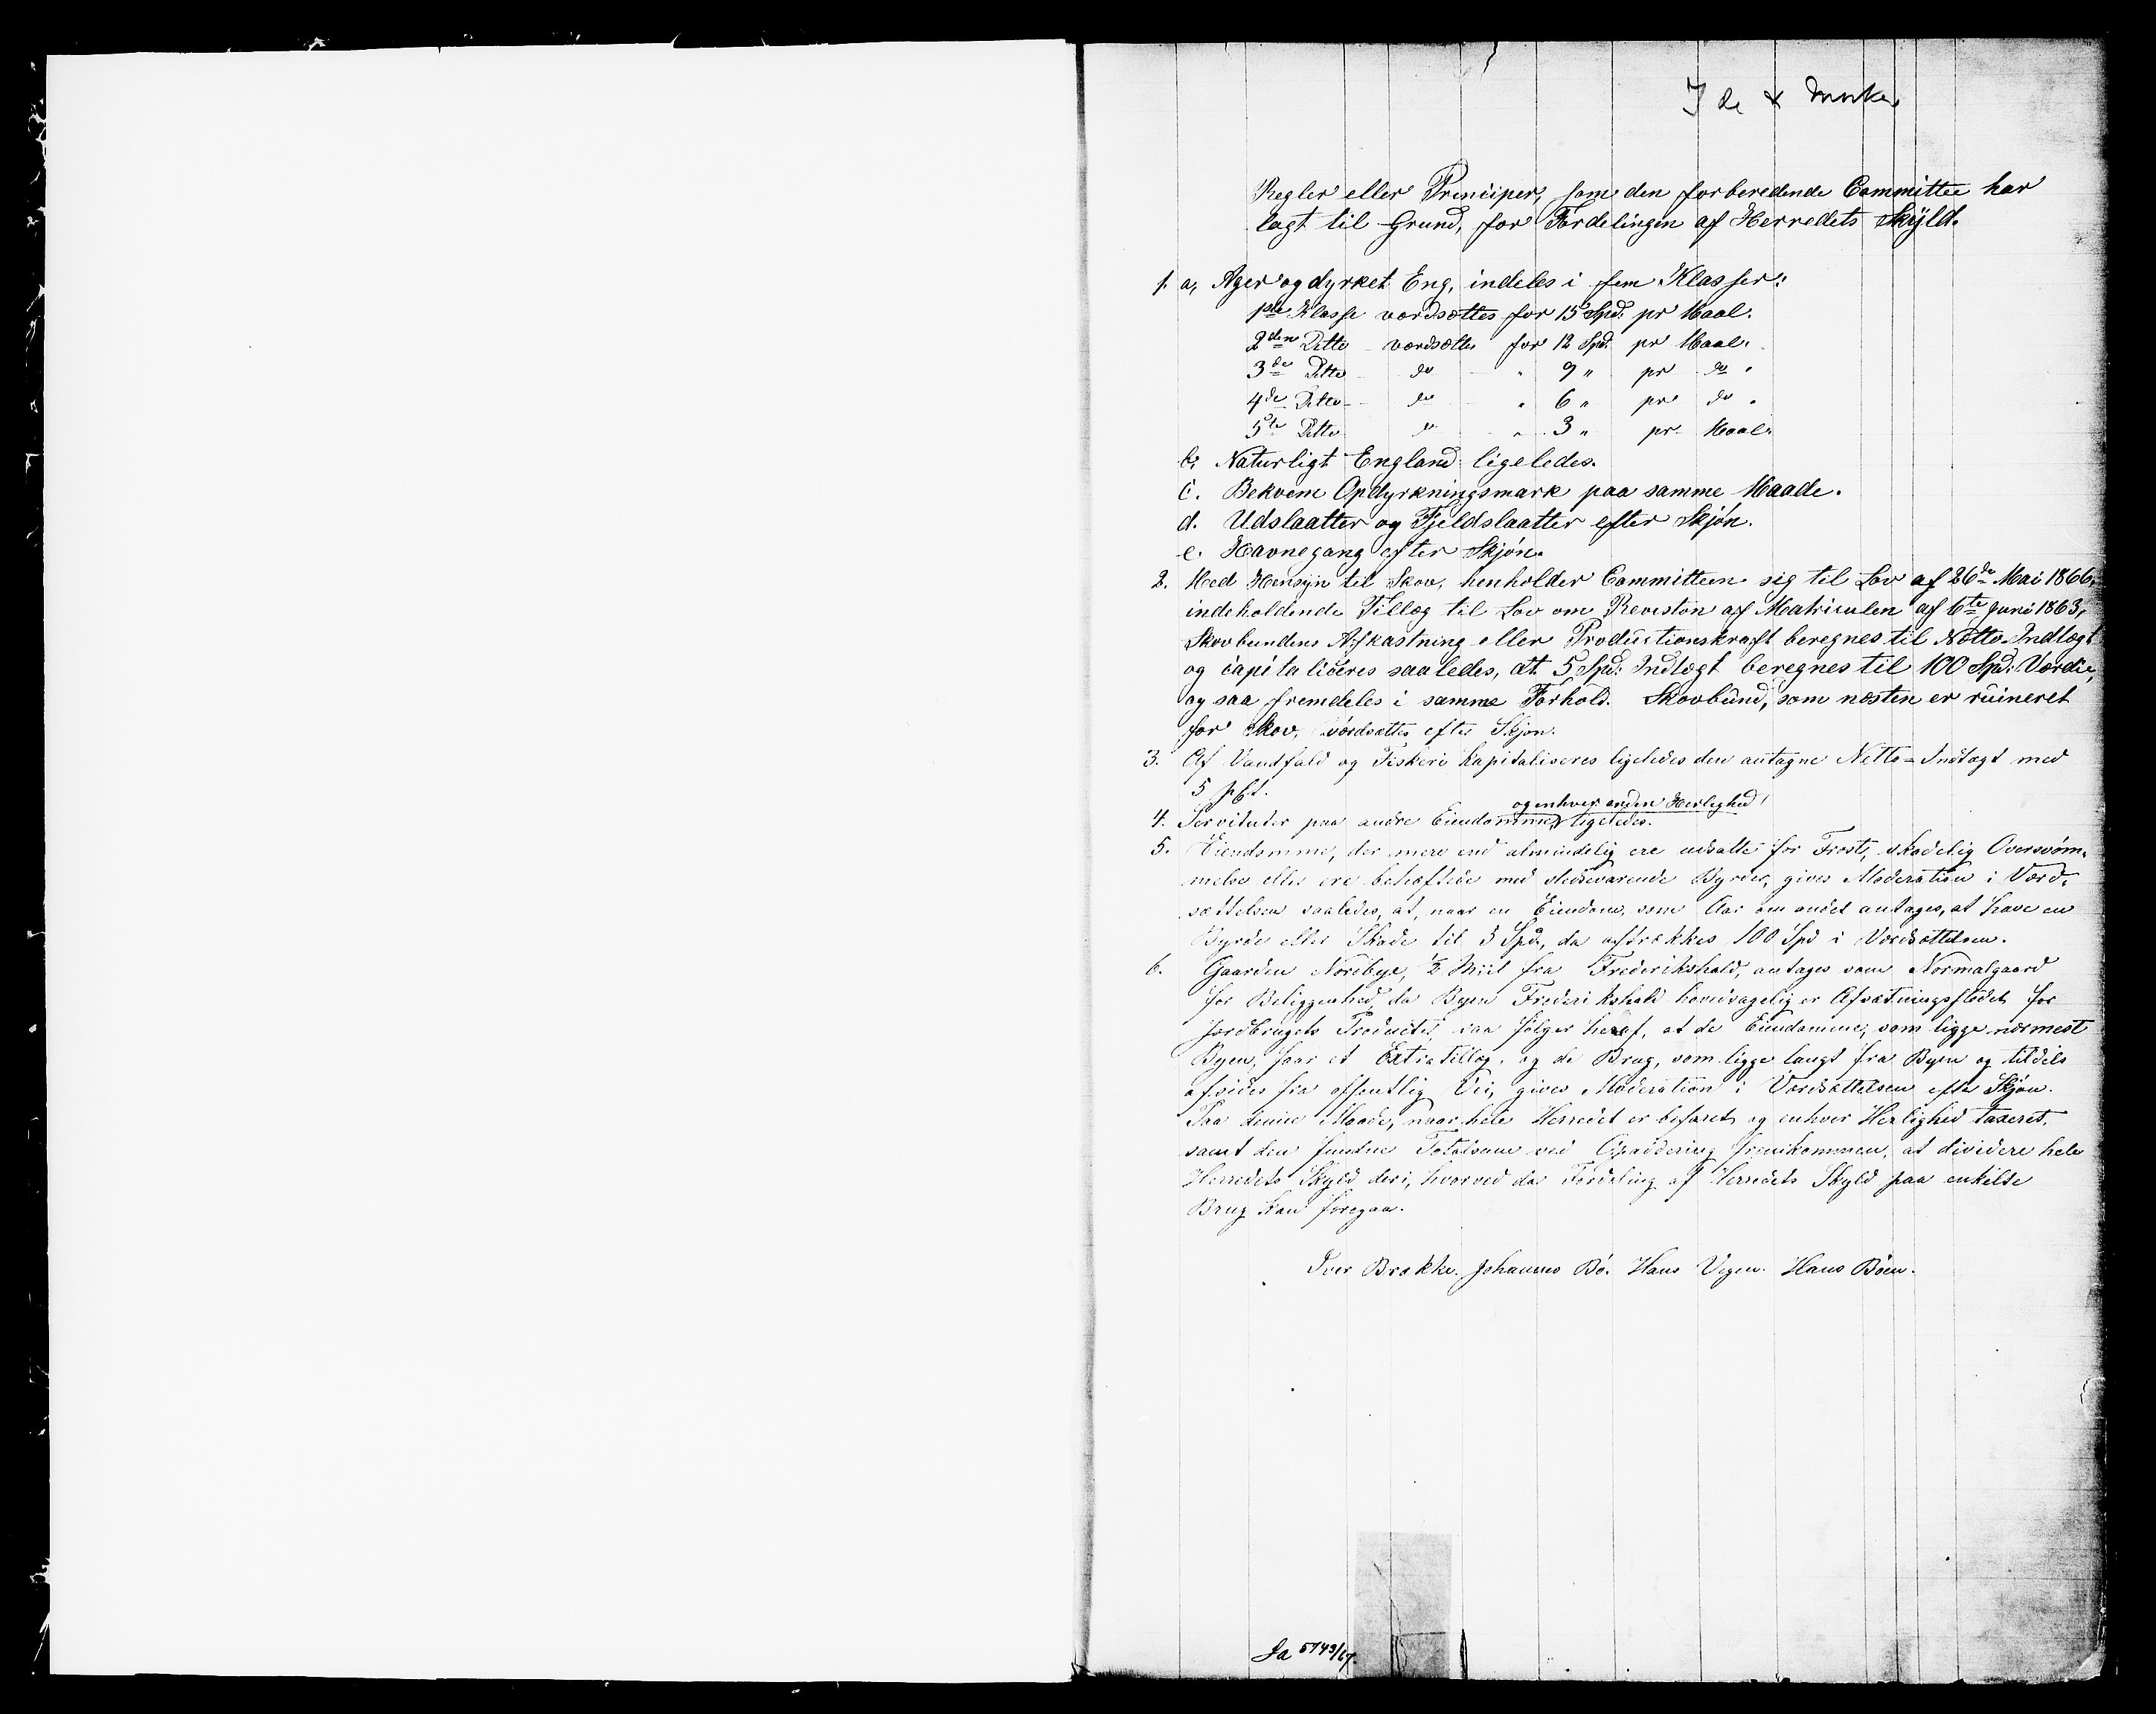 Regler eller Principer, som den forberedende Committee har
lagt til Grund, for Fordelingen af Herredets Skyld.
1. a, Ager og dyrket Eng, indeles i fem Klasser:
1ste Klasse værdsættes for 15 Spd. pr Maal.
2den Ditto værdsættes for 12 Spd. pr Maal.
3de Ditto do " 9 " pr do "
4de Ditto do " 6 " pr do "
5te Ditto do " 3 " pr Maal.
b, Naturligt England ligeledes.
c. Bekvem Opdyrkningsmark paa samme Maade.
d. Udslaatter og Fjeldslaatter efter Skjøn.
e. Havnegang efter Skjøn.
2. Med Hensyn til Skov, henholder Committeen sig til Lov af 26de Mai 1866,
indeholdende Tillæg til Lov om Revision af Matriculen af 6te Juni 1863,
Skovbundens Afkastning eller Productionskraft beregnes til Netto-Indtægt
og capitaliceres saaledes, at 5 Spd: Indtægt beregnes til 100 Spd: Værdie,
og saa fremdeles i samme Forhold. Skovbund, som næsten er ruineret
for Skov, værdsættes efter Skjøn.
3. Af Vandfald og Fiskeri kapitaliseres ligeledes den antagne Netto-Indtægt med
5 pCt.
og enhver anden Herlighed
4. Servituter paa andre Eiendomme, ligeledes.
5. Eiendomme, der mere end almindelig ere udsatte for Frost, skadelig Oversvøm-
melse eller ere behæftede med stedsevarende Byrder, gives Moderation i Værd-
sættelsen saaledes, at, naar en Eiendom, som Aar om andet antages, at have en
Byrde eller Skade til 5 Spd., da aftrækkes 100 Spd i Værdsættelsen.
6. Gaarden Nordbye, 1/2 Miil fra Frederikshald, antages som Normalgaard
for Beliggenhed, da Byen Frederikshald hovedsagelig er Afsætningsstedet for
Jordbrugets Producter, saa følger heraf, at de Eiendomme, som ligge nærmest
Byen, faar et Extratillæg, og de Brug, som ligge langt fra Byen og tildels
afsides fra offentlig Vei, gives Moderation i Værdsættelsen efter Skjøn.
Paa denne Maade, naar hele Herredet er befaret, og enhver Herlighed taxeret,
samt den fundne Totalsum ved Opaddering fremkommen, at dividere hele
Herredets Skyld deri, hvorved da Fordeling af Herredets Skyld paa enkelte
Brug kan foregaa.
Iver Brække. Johannes Bø. Hans Vegen. Hans Bøen.
5743/67.